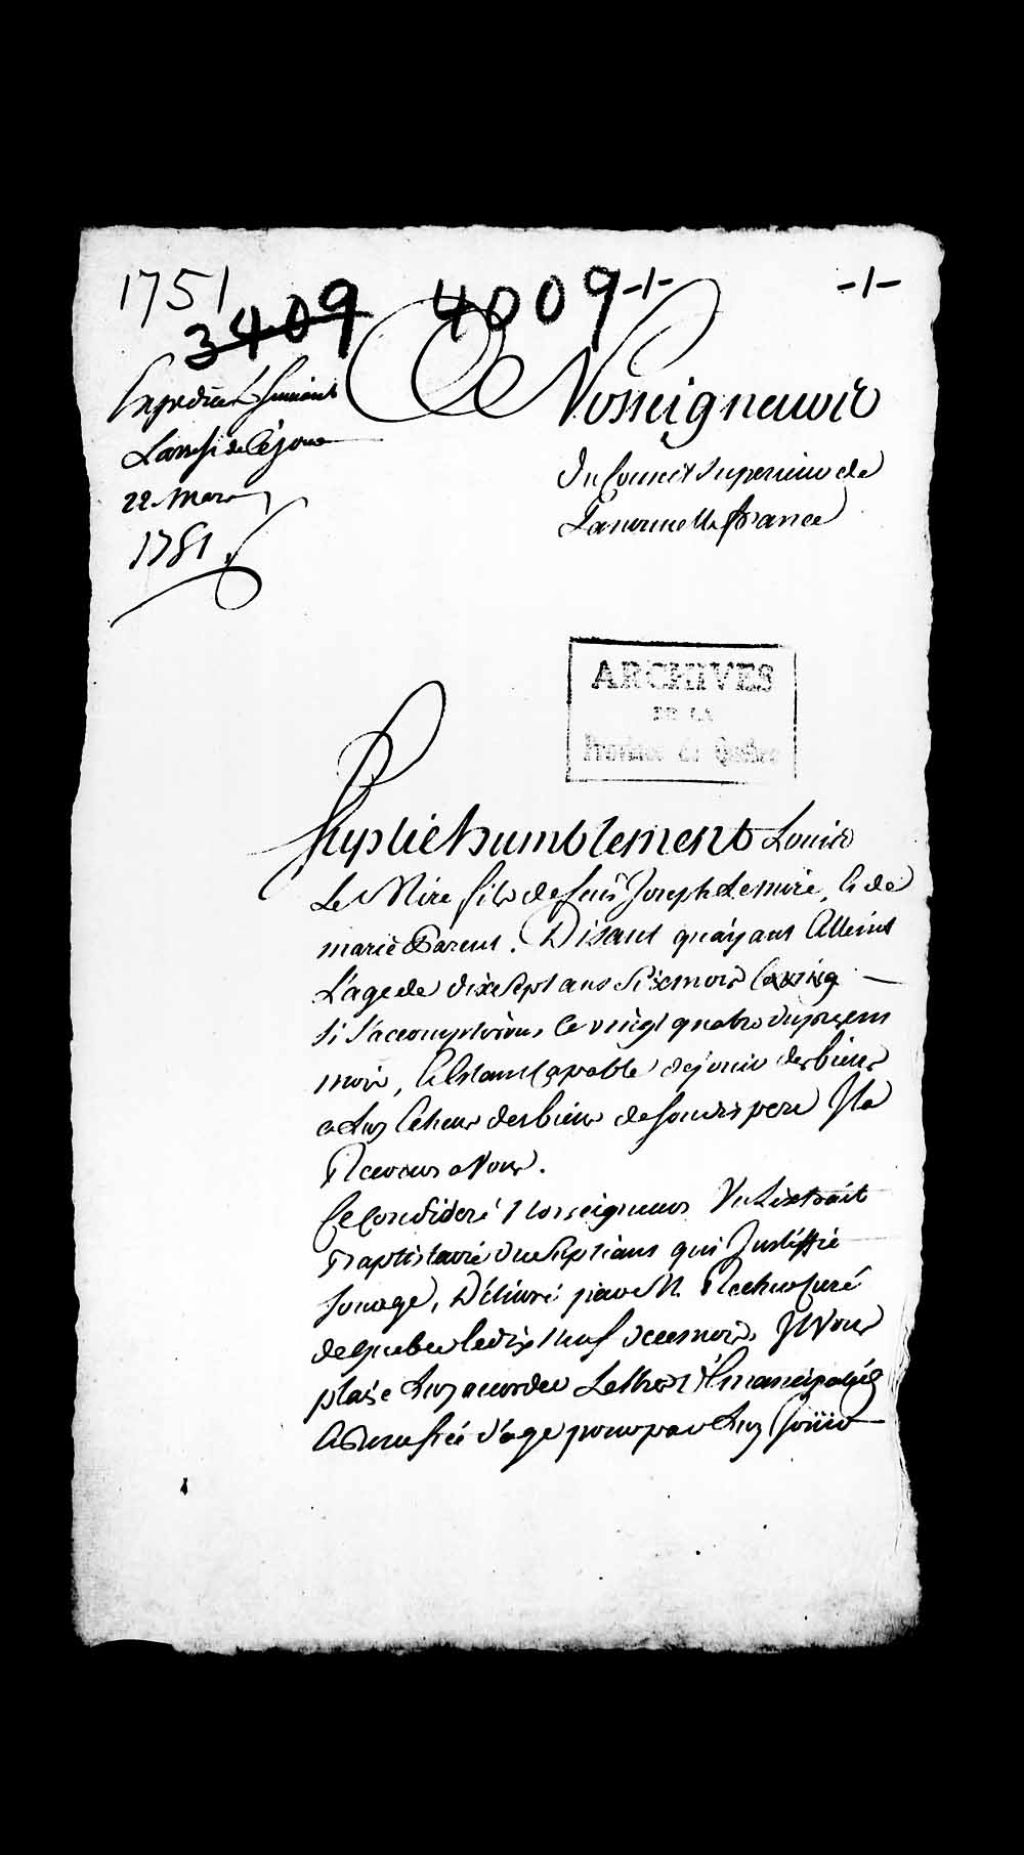 1751
3409 4009 -/- -/-
Expedié suivant
L'arrest de Cejour
22 Mars
1751
A Nosseigneurs
Du Conseil Superieur de
La nouvelle france
ARCHIVES
DE LA
Province de Québec
Suplie humblement Louis
Le Mire fils de feu Joseph Lemire, & de
marie Parent. Disant quayant Atteint
L'age de dixsept ans sixmois
accomplis ce vingt quatre du present
mois, & Estant Capable dejouir des biens
a luy Echeus des biens de son dt pere Il a
Recours a Vous.
Ce Consideré Nosseigneurs Vu Lextrait
Baptistaire du Supliant qui Justiffie
sonage, Délivré par M. Recher Curé
de quebec le dix neuf de cemois, Il Vous
plaise luy accorder Lettres d'Emancipation
& Benefice d'age pour par luy Joüir